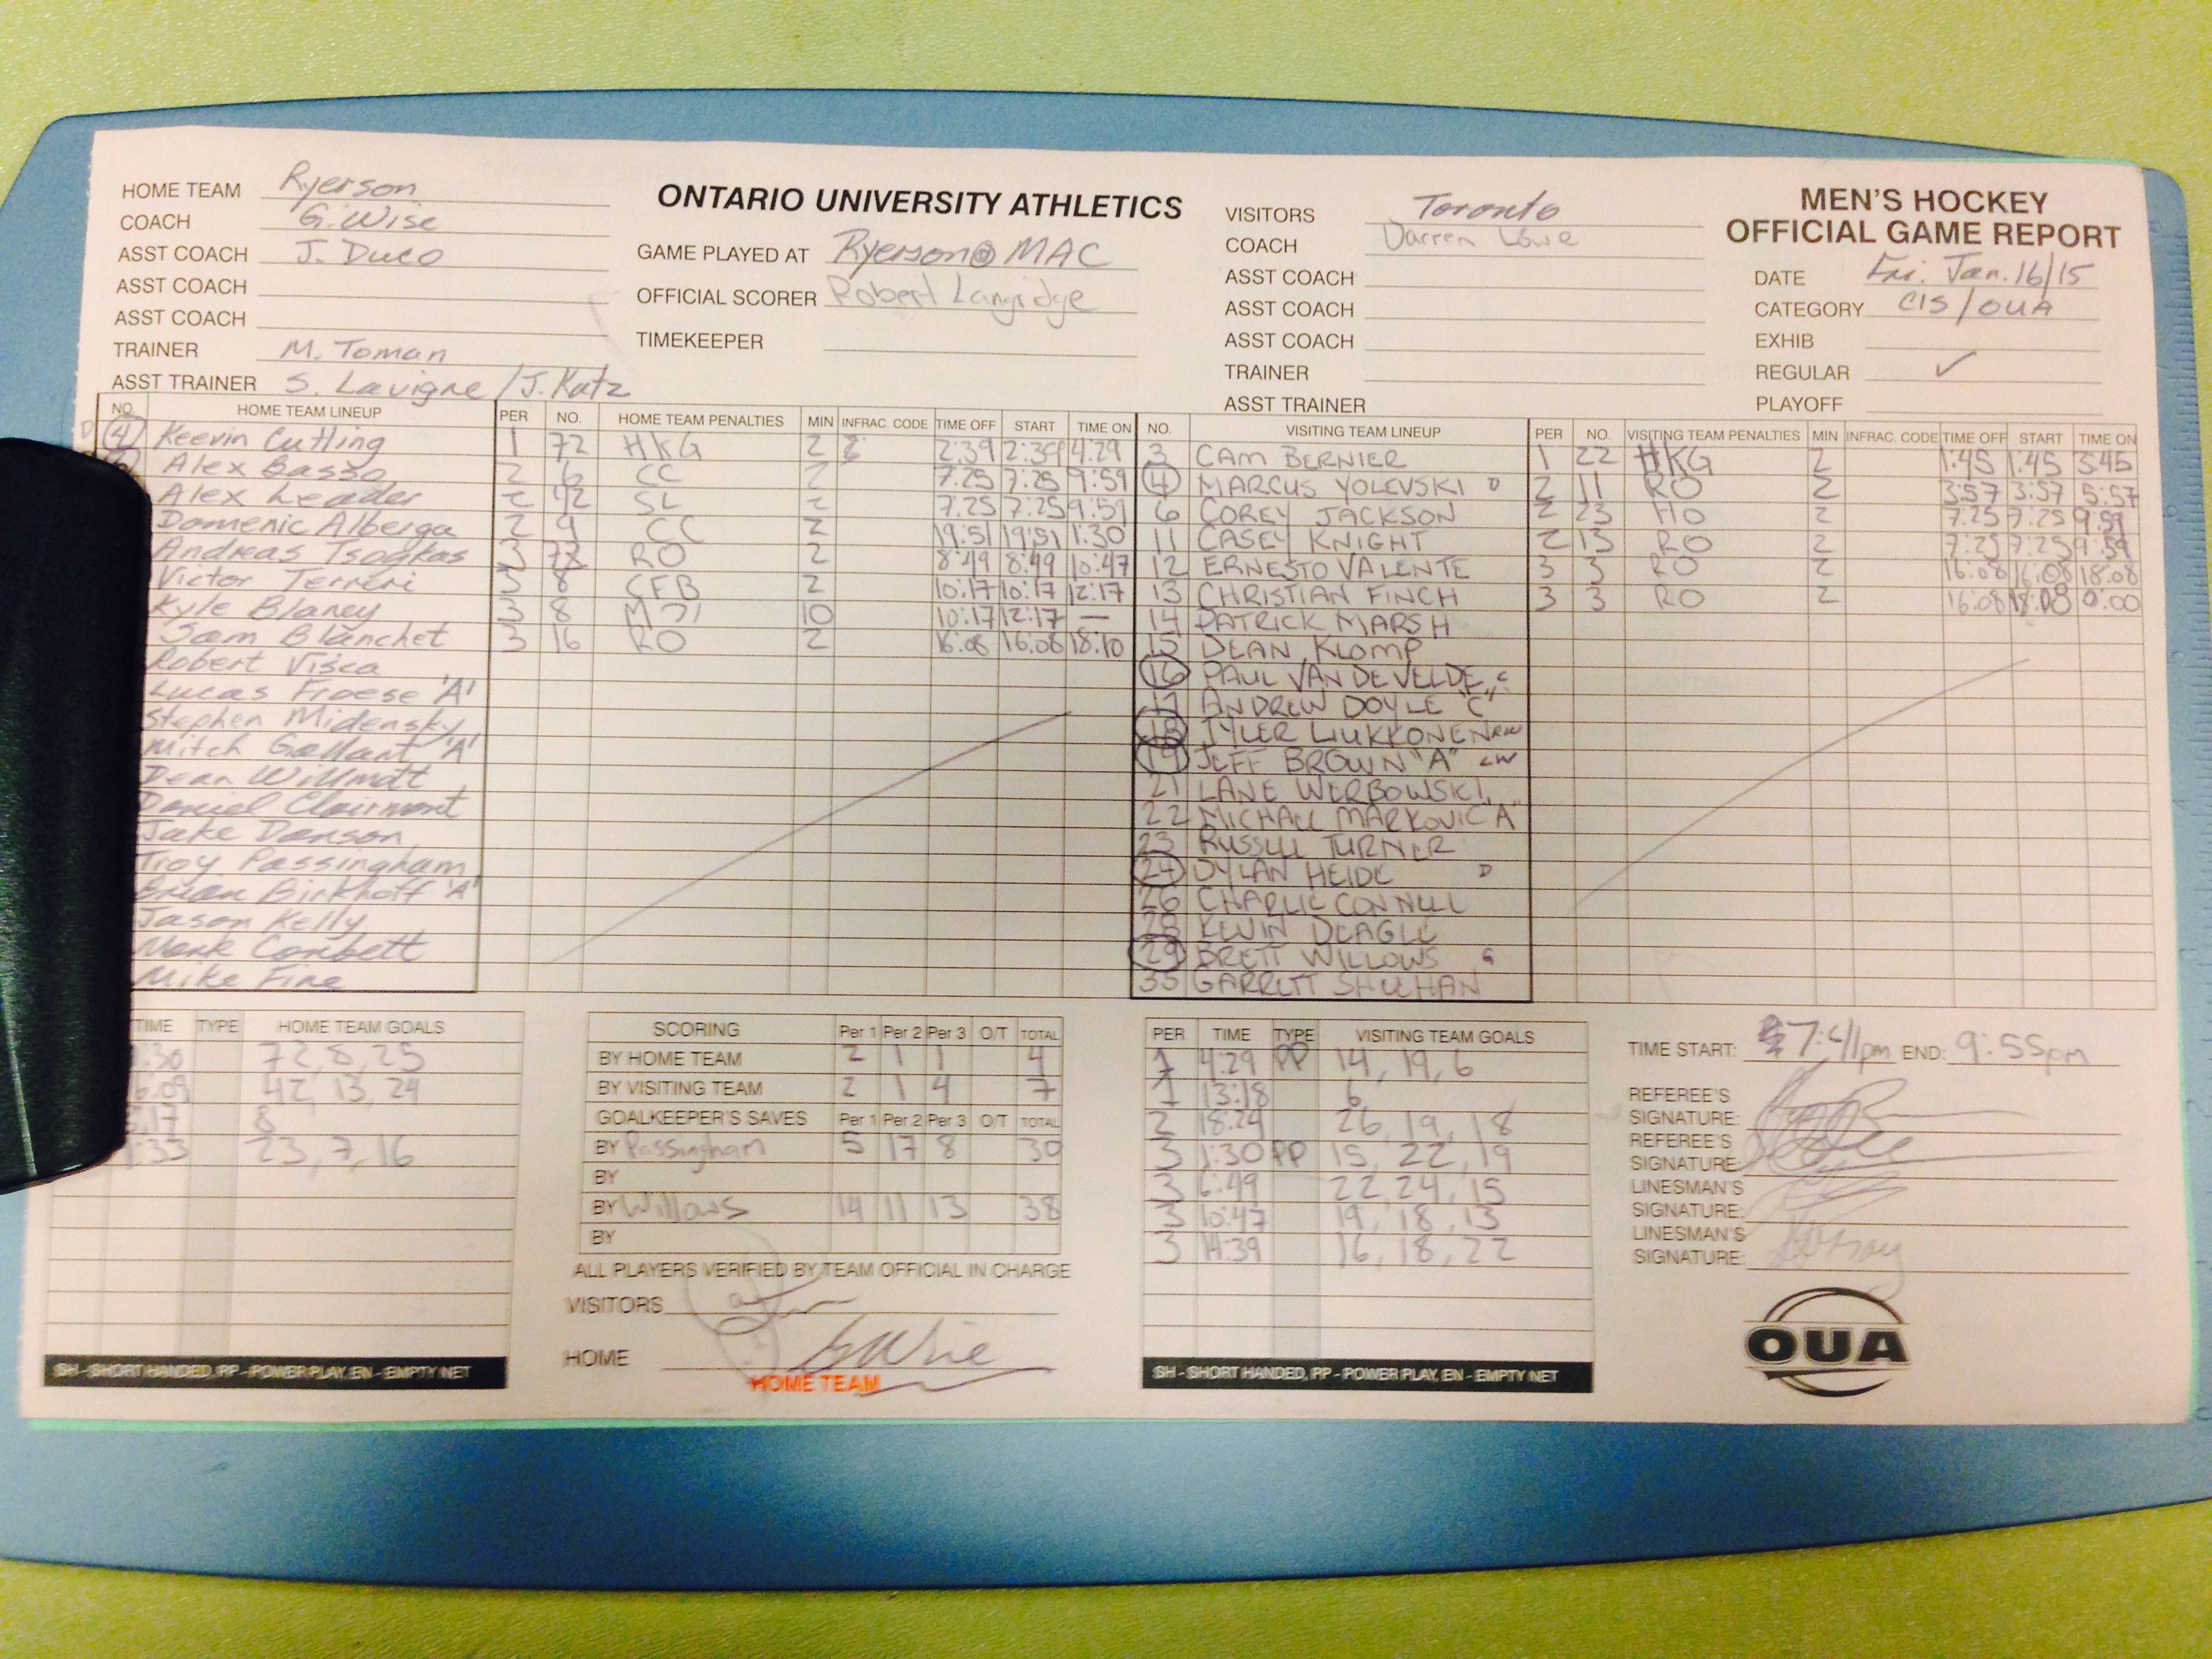 HOME TEAM Ryerson
COACH G. Wise
ASST COACH J. Duco
ASST COACH
ASST COACH
TRAINER M. Toman
ASST TRAINER S. Lavigne / J. Katz
ONTARIO UNIVERSITY ATHLETICS
GAME PLAYED AT Ryerson @ MAC
OFFICIAL SCORER Robert Langridge
TIMEKEEPER
VISITORS Toronto
COACH Darren Lowe
ASST COACH
ASST COACH
ASST COACH
TRAINER
ASST TRAINER
MEN'S HOCKEY
OFFICIAL GAME REPORT
DATE Fri. Jan. 16/15
CATEGORY CIS/OUA
EXHIB
REGULAR ✓
PLAYOFF
NO. HOME TEAM LINEUP
D 4 Keevin Cutling
Alex Basso
Alex Leader
Domenic Alberga
Andreas Tsogkas
Victor Terreri
Kyle Blaney
Sam Blanchet
Robert Visca
Lucas Froese 'A'
Stephen Midensky
Mitch Gallant 'A'
Dean Willmott
Daniel Clairmont
Jake Danson
Troy Passingham
Brian Birkhoff 'A'
Jason Kelly
Mark Corbett
Mike Fine
PER NO. HOME TEAM PENALTIES MIN INFRAC. CODE TIME OFF START TIME ON
1 72 HKG 2 2:39 2:39 4:29
2 6 CC 2 7:25 7:25 9:59
2 42 SL 2 7:25 7:25 9:59
2 9 CC 2 19:51 19:51 1:30
3 72 RO 2 8:49 8:49 10:47
3 8 CFB 2 10:17 10:17 12:17
3 8 10 10:17 12:17 —
3 16 RO 2 16:08 16:08 18:10
NO. VISITING TEAM LINEUP
3 CAM BERNIER
4 MARCUS YOLEVSKI D
6 COREY JACKSON
11 CASEY KNIGHT
12 ERNESTO VALENTE
13 CHRISTIAN FINCH
14 PATRICK MARSH
15 DEAN KLOMP
16 PAUL VAN DE VELDE C
17 ANDREW DOYLE "C"
18 TYLER LIUKKONEN RW
19 JEFF BROWN "A" LW
21 LANE WERBOWSKI
22 MICHAEL MARKOVIC "A"
23 RUSSELL TURNER
24 DYLAN HEIDE D
26 CHARLIE CONNELL
28 KEVIN DEAGLE
29 BRETT WILLOWS G
35 GARRETT SHEEHAN
PER NO. VISITING TEAM PENALTIES MIN INFRAC. CODE TIME OFF START TIME ON
1 22 HKG 2 1:45 1:45 3:45
2 11 RO 2 3:57 3:57 5:57
2 23 HO 2 7:25 7:25 9:59
2 13 RO 2 7:25 7:25 9:59
3 3 RO 2 16:08 16:08 18:08
3 3 RO 2 16:08 18:08 0:00
TIME TYPE HOME TEAM GOALS
:30 72, 8, 25
6:09 42, 13, 24
:17 8
:33 23, 7, 16
SH - SHORT HANDED, PP - POWER PLAY, EN - EMPTY NET
SCORING Per 1 Per 2 Per 3 O/T TOTAL
BY HOME TEAM 2 1 1 4
BY VISITING TEAM 2 1 4 7
GOALKEEPER'S SAVES Per 1 Per 2 Per 3 O/T TOTAL
BY Passingham 5 17 8 30
BY
BY Willows 14 11 13 38
BY
ALL PLAYERS VERIFIED BY TEAM OFFICIAL IN CHARGE
VISITORS
HOME G Wise
HOME TEAM
PER TIME TYPE VISITING TEAM GOALS
1 4:29 PP 14, 19, 6
1 13:18 6
2 18:24 26, 19, 18
3 1:30 PP 15, 22, 19
3 6:49 22, 24, 15
3 10:47 19, 18, 13
3 14:39 16, 18, 22
SH - SHORT HANDED, PP - POWER PLAY, EN - EMPTY NET
TIME START: 7:41pm END: 9:55pm
REFEREE'S
SIGNATURE:
REFEREE'S
SIGNATURE:
LINESMAN'S
SIGNATURE:
LINESMAN'S
SIGNATURE:
OUA